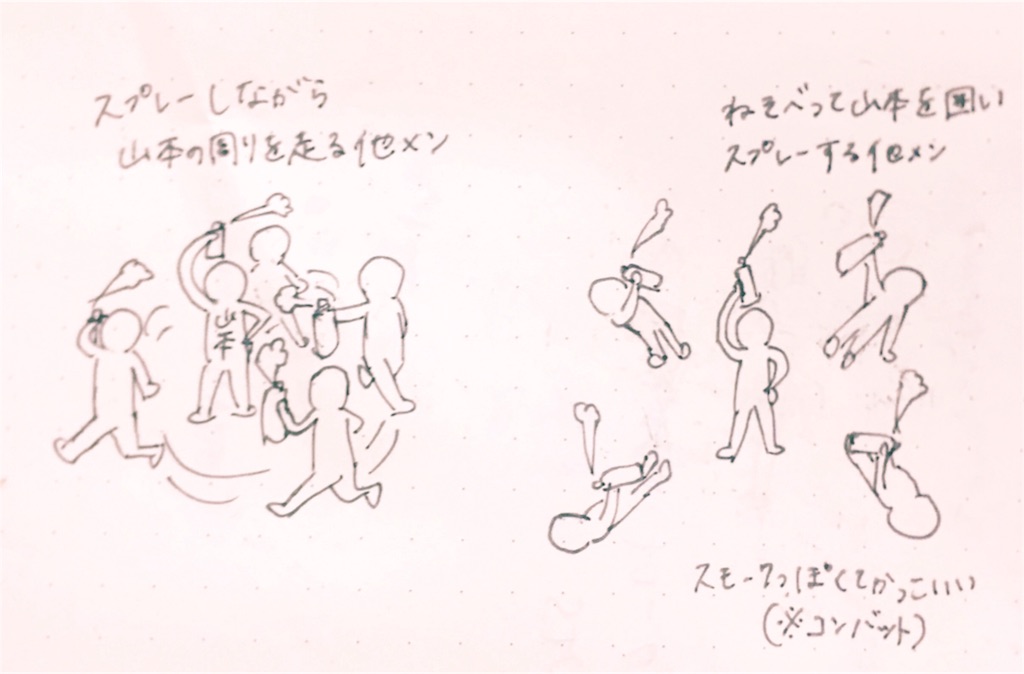 スプレーしながら
山本の周りを走る他メン
山本
ねそべって山本を囲い
スプレーする他メン
スモークっぽくてかっこいい
(※コンバット)